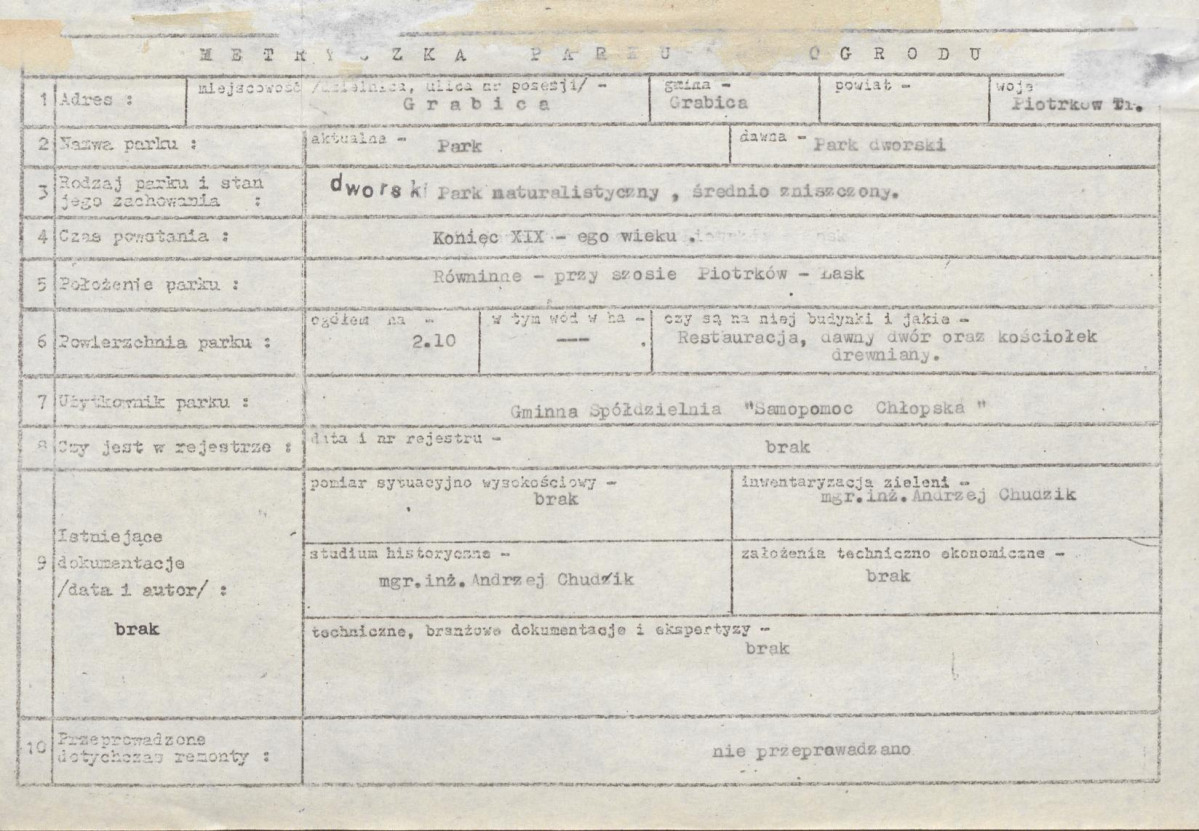 METRYCZKA PARKU OGRODU
1 Adres :
miejscowość /dzielnica, ulica nr posesji/ -
Grabica
gmina -
Grabica
powiat -
woje
Piotrków Tr.
2 Nazwa parku :
aktualna -
Park
dawna -
Park dworski
3 Rodzaj parku i stan
jego zachowania :
dworski Park naturalistyczny , średnio zniszczony.
4 Czas powstania :
Koniec XIX - ego wieku .
5 Położenie parku :
Równinne - przy szosie Piotrków - Łask
6 Powierzchnia parku :
ogółem ha -
2.10
w tym wód w ha -
--- .
czy są na niej budynki i jakie -
Restauracja, dawny dwór oraz kościołek
drewniany.
7 Użytkownik parku :
Gminna Spółdzielnia "Samopomoc Chłopska "
8 Czy jest w rejestrze :
data i nr rejestru -
brak
9 Istniejące
dokumentacje
/data i autor/ :
brak
pomiar sytuacyjno wysokościowy -
brak
inwentaryzacja zieleni -
mgr.inż.Andrzej Chudzik
studium historyczne -
mgr.inż.Andrzej Chudzik
założenia techniczno ekonomiczne -
brak
techniczne, branżowe dokumentacje i ekspertyzy -
brak
10 Przeprowadzone
dotychczas remonty :
nie przeprawadzano